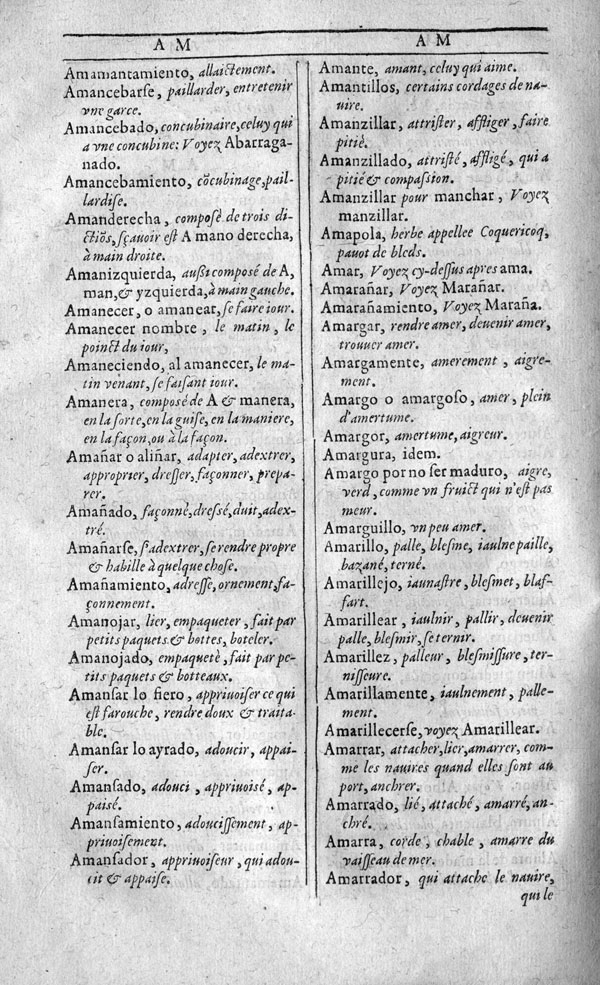 A M
Amamantamiento, allaictement.
Amancebarſe, paillarder, entretenir
vne garce.
Amancebado, concubinaire, celuy qui
a vne concubine: Voyez Abarraga-
nado.
Amancebamiento, cōcubinage, pail-
lardiſe.
Amanderecha, composè de trois di-
ctiōs, ſçauoir eſt A mano derecha,
à main droite.
Amanizquierda, außi composé de A,
man, & yzquierda, à main gauche.
Amanecer, o amanear, ſe faire iour.
Amanecer nombre, le matin, le
poinct du iour,
Amaneciendo, al amanecer, le ma-
tin venant, ſe faiſant iour.
Amanera, composé de A & manera,
en la ſorte, en la guiſe, en la maniere,
en la façon, ou à la façon.
Amañar o aliñar, adapter, adextrer,
approprier, dreſſer, façonner, prepa-
rer.
Amañado, façonnè, dreſſé, duit, adex-
tré.
Amañarſe, s'adextrer, ſe rendre propre
& habille à quelque choſe.
Amañamiento, adreſſe, ornement, fa-
çonnement.
Amanojar, lier, empaqueter, fait par
petits paquets & bottes, boteler.
Amanojado, empaquetè, fait par pe-
tits paquets & botteaux.
Amanſar lo fiero, appriuoiſer ce qui
eſt farouche, rendre doux & traita-
ble.
Amanſar lo ayrado, adoucir, appai-
ſer.
Amanſado, adouci, appriuoisé, ap-
paisé.
Amanſamiento, adouciſſement, ap-
priuoiſement.
Amanſador, appriuoiſeur, qui adou-
cit & appaiſe.
A M
Amante, amant, celuy qui aime.
Amantillos, certains cordages de na-
uire.
Amanzillar, attriſter, affliger, faire
pitiè.
Amanzillado, attriſté, affligé, qui a
pitié & compaſsion.
Amanzillar pour manchar, Voyez
manzillar.
Amapola, herbe appellee Coquericoq,
pauot de bleds.
Amar, Voyez cy-deſſus apres ama.
Amarañar, Voyez Marañar.
Amarañamiento, Voyez Maraña.
Amargar, rendre amer, deuenir amer,
trouuer amer.
Amargamente, amerement, aigre-
ment.
Amargo o amargoſo, amer, plein
d'amertume.
Amargor, amertume, aigreur.
Amargura, idem.
Amargo por no ſer maduro, aigre,
verd, comme vn fruict qui n'eſt pas
meur.
Amarguillo, vn peu amer.
Amarillo, palle, bleſme, iaulne paille,
bazané, terné.
Amarillejo, iaunaſtre, bleſmet, blaf-
fart.
Amarillear, iaulnir, pallir, deuenir
palle, bleſmir, ſe ternir.
Amarillez, palleur, bleſmiſſure, ter-
niſſeure.
Amarillamente, iaulnement, palle-
ment.
Amarillecerſe, voyez Amarillear.
Amarrar, attacher, lier, amarrer, com-
me les nauires quand elles ſont au
port, anchrer.
Amarrado, lié, attaché, amarré, an-
chré.
Amarra, corde, chable, amarre du
vaiſſeau de mer.
Amarrador, qui attache le nauire,
qui le